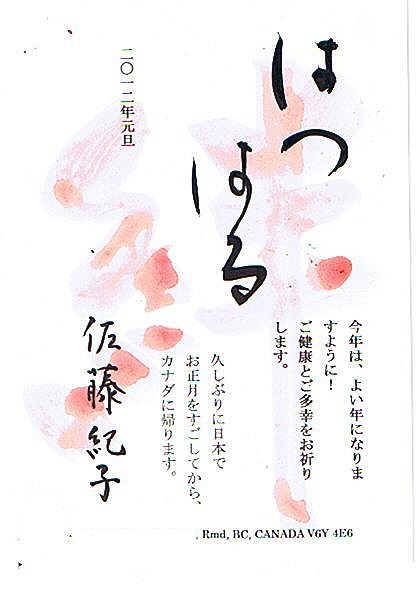 はつ
はる
今年は、よい年になりま
すように！
ご健康とご多幸をお祈り
します。
久しぶりに日本で
お正月をすごしてから、
カナダに帰ります。
二〇一二年元旦
佐藤紀子
, Rmd, BC, CANADA V6Y 4E6